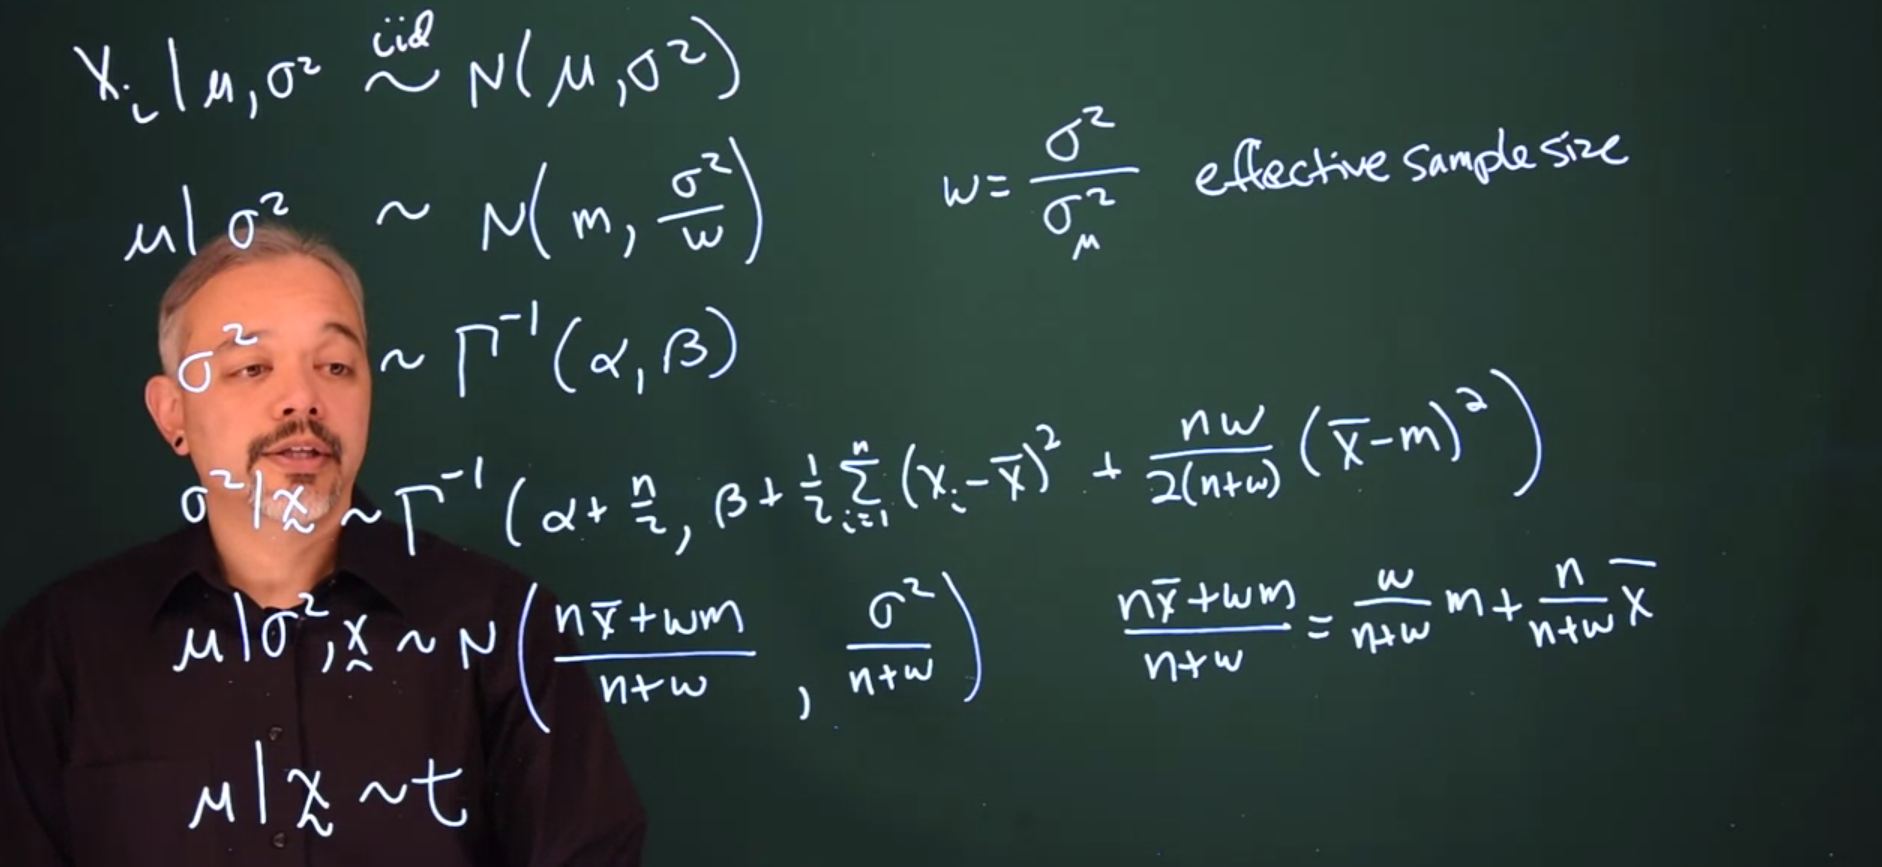 Xᵢ | μ, σ² iid ~ N(μ, σ²)
μ | σ² ~ N(m, σ²/w)
w = σ²/σ²_μ effective sample size
σ² ~ Γ⁻¹(α, β)
σ² | x̰ ~ Γ⁻¹(α + n/2, β + 1/2 Σⁿᵢ₌₁ (xᵢ - x̄)² + nw/2(n+w) (x̄ - m)²)
μ | σ², x̰ ~ N(nx̄ + wm / n+w, σ²/n+w)
nx̄ + wm / n+w = w/n+w m + n/n+w x̄
μ | x̰ ~ t